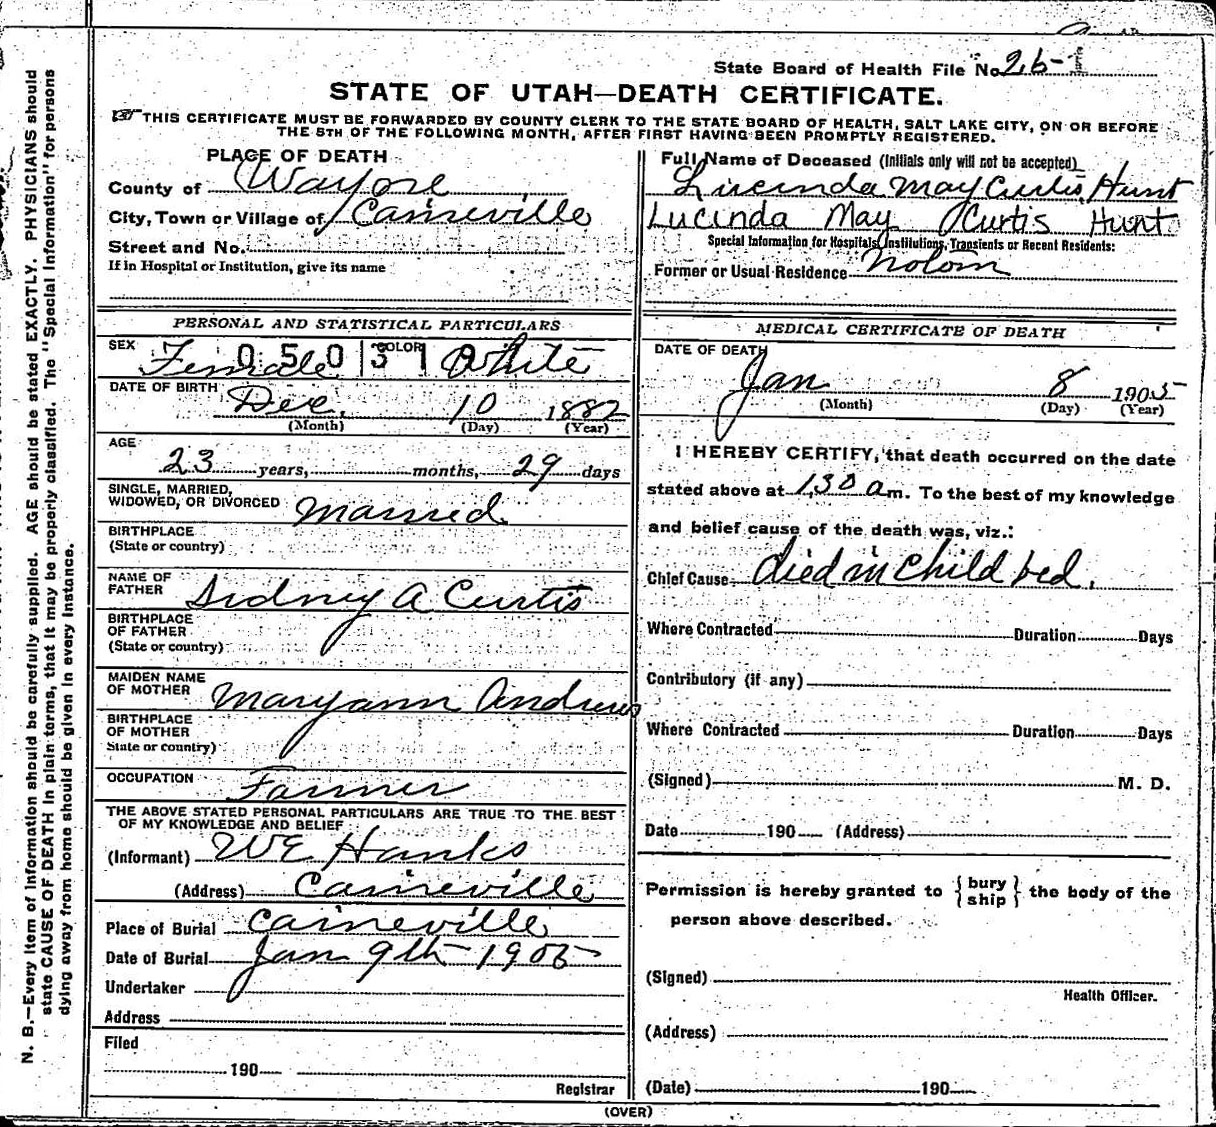 State Board of Health File No. 26-1
STATE OF UTAH—DEATH CERTIFICATE.
THIS CERTIFICATE MUST BE FORWARDED BY COUNTY CLERK TO THE STATE BOARD OF HEALTH, SALT LAKE CITY, ON OR BEFORE
THE 5TH OF THE FOLLOWING MONTH, AFTER FIRST HAVING BEEN PROMPTLY REGISTERED.
PLACE OF DEATH
County of Wayne
City, Town or Village of Caineville
Street and No.
If in Hospital or Institution, give its name
Full Name of Deceased (Initials only will not be accepted)
Lucinda May Curtis Hunt
Lucinda May Curtis Hunt
Special Information for Hospitals, Institutions, Transients or Recent Residents:
Former or Usual Residence
PERSONAL AND STATISTICAL PARTICULARS
SEX Female COLOR White
0 5 0 3 1 0
DATE OF BIRTH Dec. 10 1882
(Month) (Day) (Year)
AGE 23 years, months, 29 days
SINGLE, MARRIED,
WIDOWED, OR DIVORCED Married
BIRTHPLACE
(State or country)
NAME OF
FATHER Sidney A Curtis
BIRTHPLACE
OF FATHER
(State or country)
MAIDEN NAME
OF MOTHER Maryann Andrews
BIRTHPLACE
OF MOTHER
State or country)
OCCUPATION Farmer
THE ABOVE STATED PERSONAL PARTICULARS ARE TRUE TO THE BEST
OF MY KNOWLEDGE AND BELIEF
(Informant) WE Hanks
(Address) Caineville
Place of Burial Caineville
Date of Burial Jan 9th 1905
Undertaker
Address
Filed
190
Registrar
MEDICAL CERTIFICATE OF DEATH
DATE OF DEATH
Jan 8 1905
(Month) (Day) (Year)
I HEREBY CERTIFY, that death occurred on the date
stated above at 1,30 a m. To the best of my knowledge
and belief cause of the death was, viz.:
Chief Cause died in child bed.
Where Contracted Duration Days
Contributory (if any)
Where Contracted Duration Days
(Signed) M. D.
Date 190 (Address)
Permission is hereby granted to {bury ship} the body of the
person above described.
(Signed)
Health Officer.
(Address)
(Date) 190
(OVER)
N. B.—Every item of information should be carefully supplied. AGE should be stated EXACTLY. PHYSICIANS should
state CAUSE OF DEATH in plain terms, that it may be properly classified. The "Special Information" for persons
dying away from home should be given in every instance.